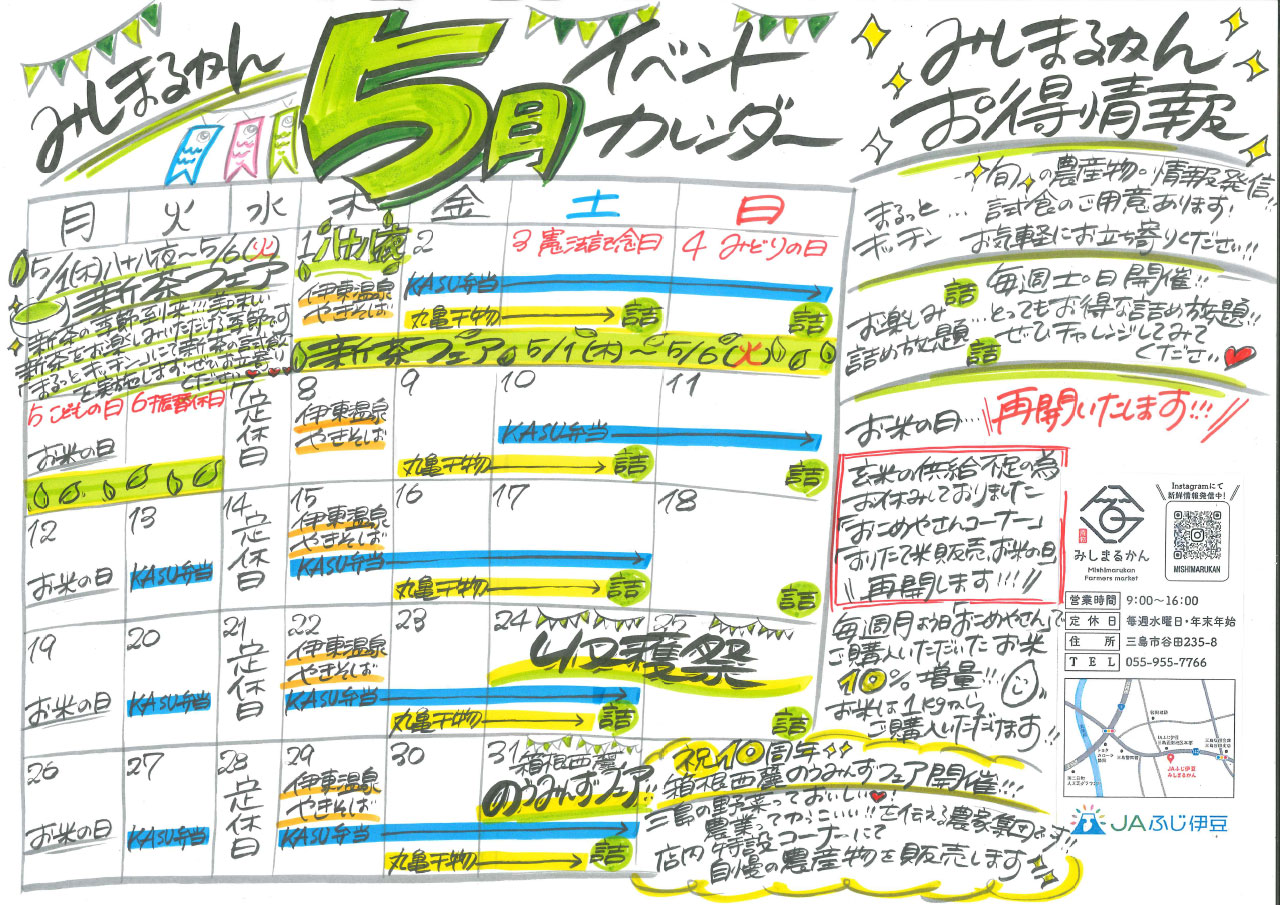 みしまるかん
5月
イベント
カレンダー
月 火 水 木 金 土 日
5/1(木)八十八夜〜5/6(火)
新茶フェア
新茶の季節到来!!!美味しい
新茶をお楽しみいただける季節です
まるっとキッチンにて新茶の試飲
を実施します。ぜひお立寄り
ください
1 八十八夜
伊東温泉
やきそば
2
3 憲法記念日
4 みどりの日
KASU弁当
丸亀干物
詰
詰
新茶フェア 5/1(木)〜5/6(火)
5 こどもの日
お米の日
6 振替休日
7 定休日
8
伊東温泉
やきそば
9
10
11
KASU弁当
丸亀干物
詰
詰
12
お米の日
13
KASU弁当
14 定休日
15
伊東温泉
やきそば
KASU弁当
16
17
18
丸亀干物
詰
詰
19
お米の日
20
KASU弁当
21 定休日
22
伊東温泉
やきそば
KASU弁当
23
24
25
収穫祭
丸亀干物
詰
詰
26
お米の日
27
KASU弁当
28 定休日
29
伊東温泉
やきそば
KASU弁当
30
31
箱根西麓
のうみんずフェア!!
丸亀干物
詰
みしまるかん
お得情報
まるっと
キッチン
…
旬の農産物の情報発信!!
試食のご用意あります!
お気軽にお立ち寄りください!!
お楽しみ
詰め放題
詰
詰
毎週土。日開催!!
…とってもお得な詰め放題!!
ぜひチャレンジしてみて
ください
お米の日…
再開いたします!!!
玄米の供給不足の為
お休みしておりました
「おこめやさんコーナー」
「すりたて米販売、お米の日」
再開します!!!
毎週月よう日「おこめやさん」で
ご購入いただいたお米
10%増量!!
お米は1kgからご購入いただけます!!
祝10周年
箱根西麓のうみんずフェア開催!!!
三島の野菜っておいしい
農業ってかっこいい!!を伝える農家集団です!!
店内特設コーナーにて
自慢の農産物を販売します
みしまるかん
Mishimarukan
Farmers market
Instagramにて
新鮮情報発信中!
MISHIMARUKAN
営業時間 9:00〜16:00
定休日 毎週水曜日・年末年始
住所 三島市谷田235-8
TEL 055-955-7766
JAふじ伊豆
みしまるかん
JAふじ伊豆